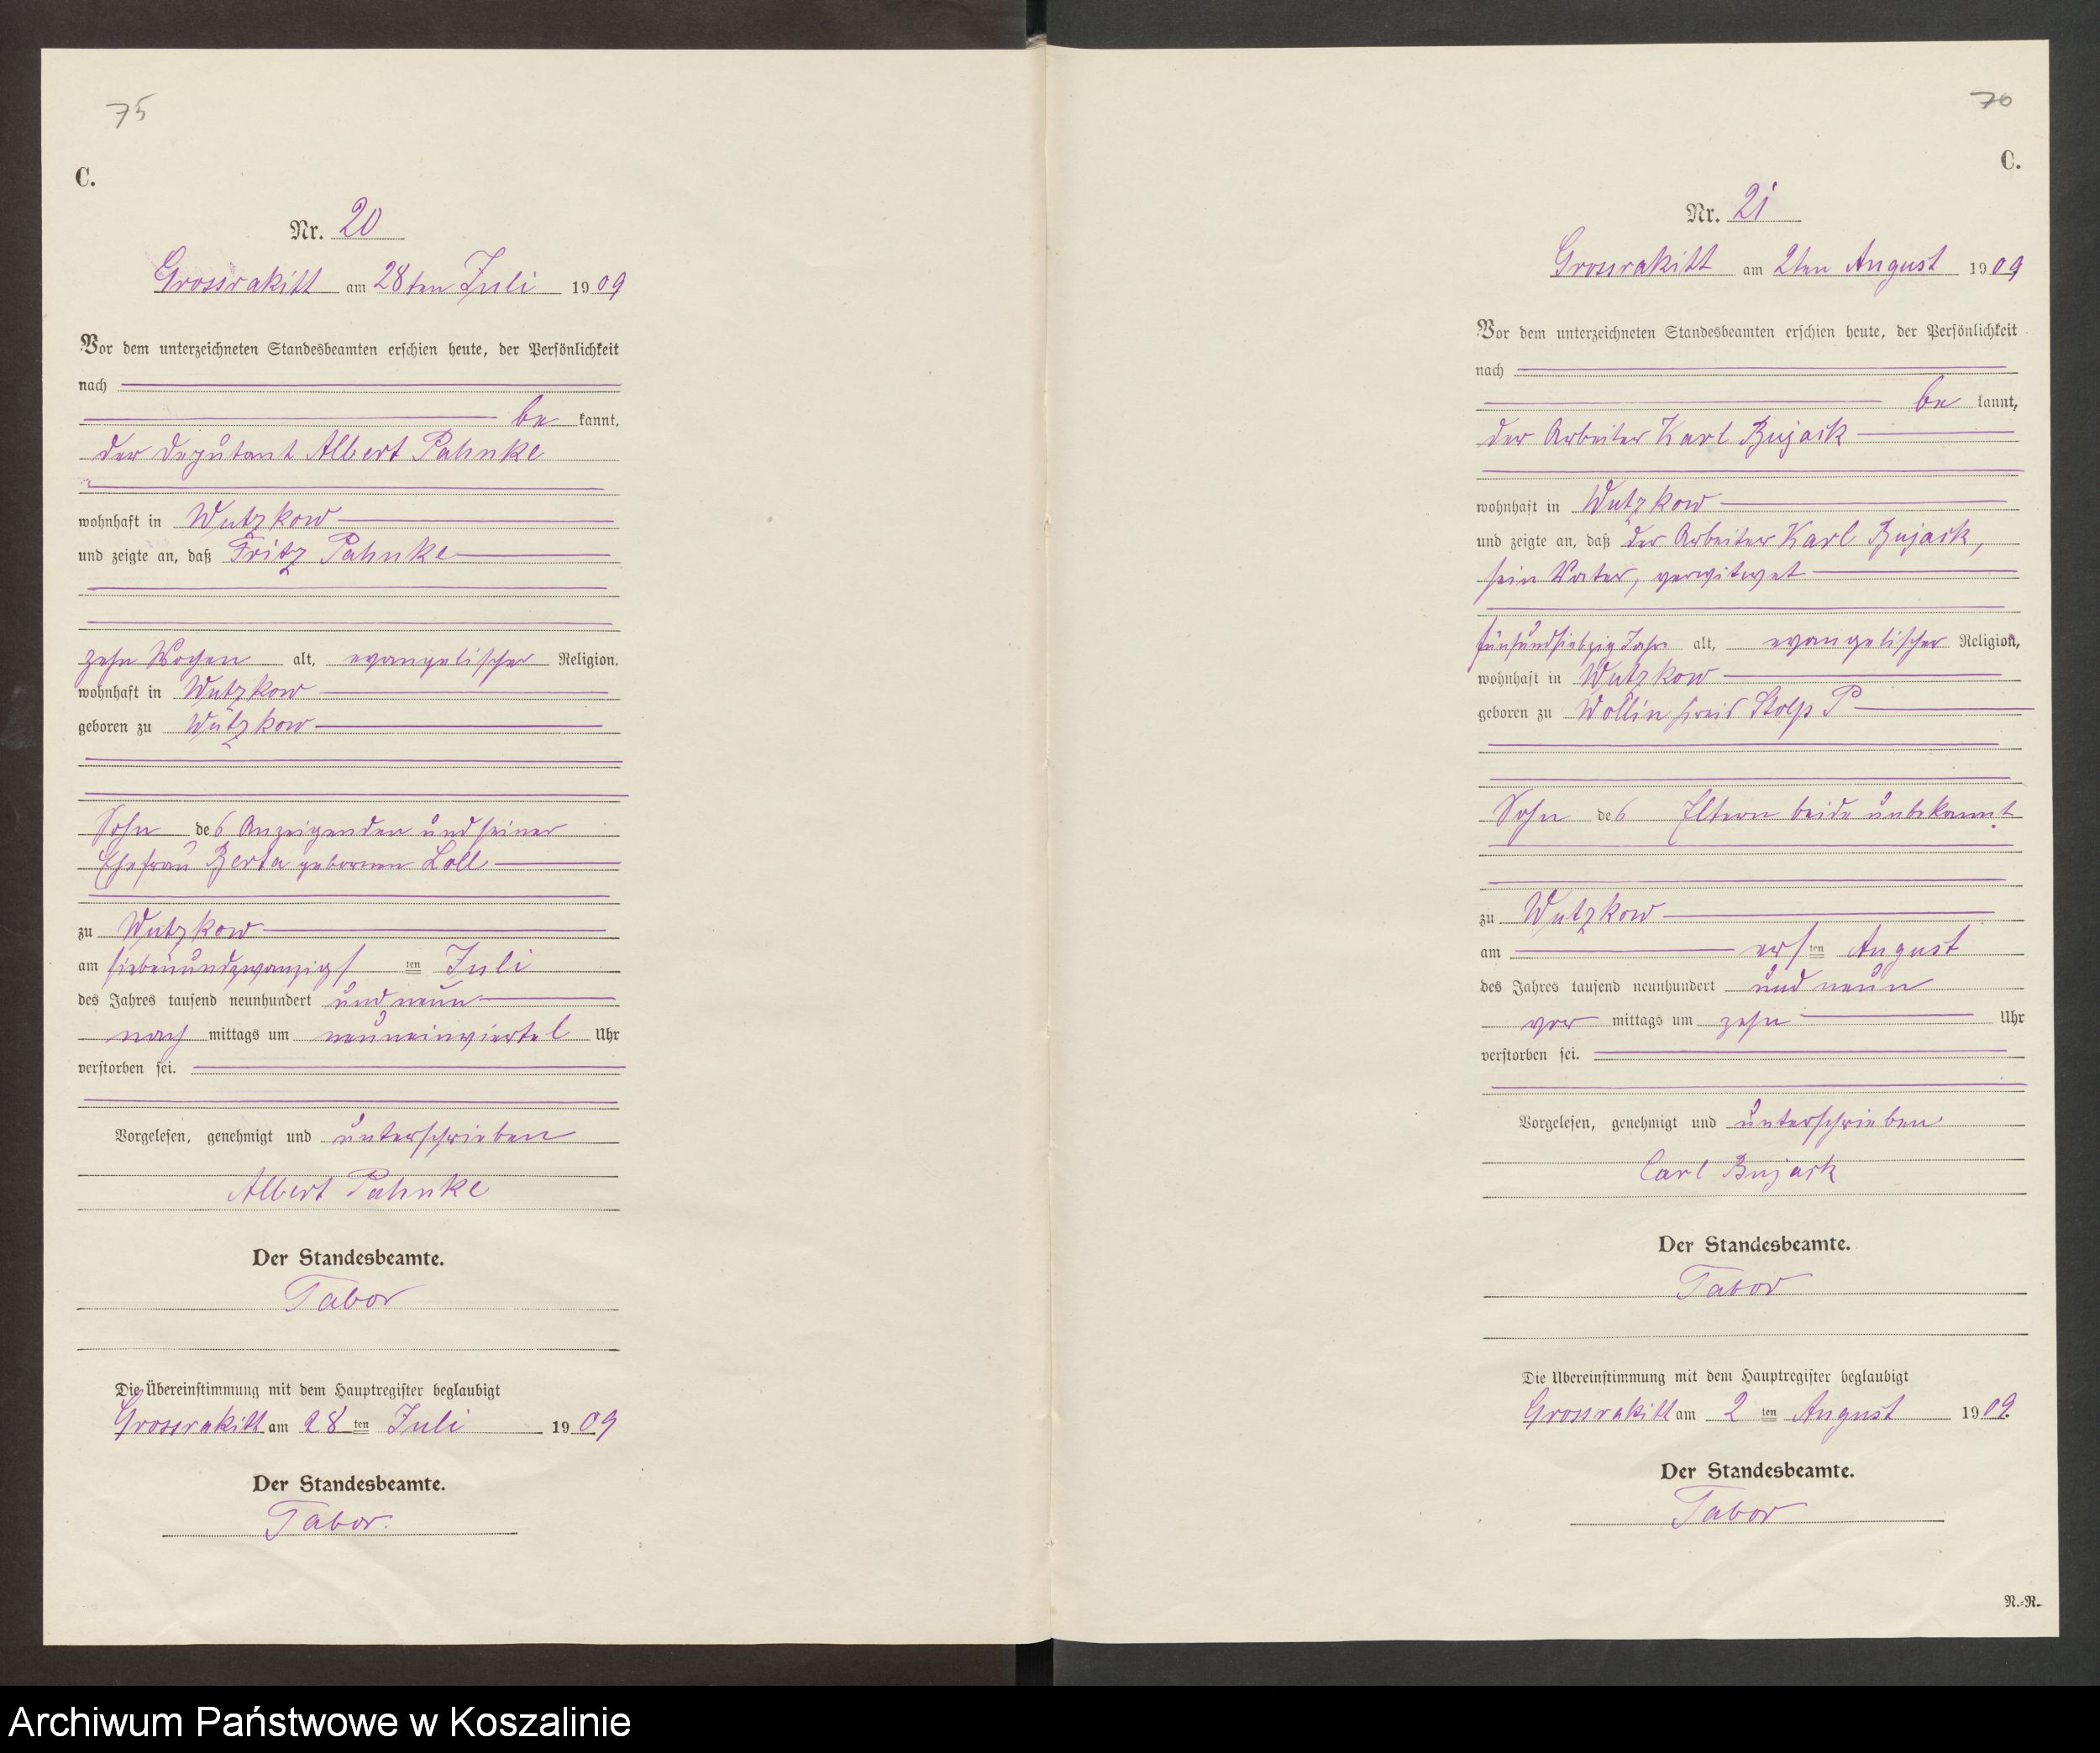 75
C.
Nr. 20
Grossrakitt am 28ten Juli 1909
Vor dem unterzeichneten Standesbeamten erschien heute, der Persönlichkeit
nach
be kannt,
der Deputant Albert Pahnke
wohnhaft in Wutzkow
und zeigte an, daß Fritz Pahnke
zehn Wochen alt, evangelischer Religion.
wohnhaft in Wutzkow
geboren zu Wutzkow
Sohn des Anzeigenden und seiner
Ehefrau Berta geborenen Loll
zu Wutzkow
am siebenundzwanzigsten Juli
des Jahres tausend neunhundert und neun
nach mittags um neuneinviertel Uhr
verstorben sei.
Vorgelesen, genehmigt und unterschrieben
Albert Pahnke
Der Standesbeamte.
Tabor
Die Übereinstimmung mit dem Hauptregister beglaubigt
Grossrakitt am 28 ten Juli 1909
Der Standesbeamte.
Tabor.
76
C.
Nr. 21
Grossrakitt am 2ten August 1909
Vor dem unterzeichneten Standesbeamten erschien heute, der Persönlichkeit
nach
be kannt,
der Arbeiter Karl Bujack
wohnhaft in Wutzkow
und zeigte an, daß der Arbeiter Karl Bujack,
sein Vater, verwitwet
fünfundsiebzig Jahre alt, evangelischer Religion,
wohnhaft in Wutzkow
geboren zu Wollin Kreis Stolp P
Sohn des Eltern beide unbekannt
zu Wutzkow
am ersten August
des Jahres tausend neunhundert und neun
vor mittags um zehn Uhr
verstorben sei.
Vorgelesen, genehmigt und unterschrieben
Carl Bujack
Der Standesbeamte.
Tabor
Die Übereinstimmung mit dem Hauptregister beglaubigt
Grossrakitt am 2 ten August 1909.
Der Standesbeamte.
Tabor
N.-R.
Archiwum Państwowe w Koszalinie